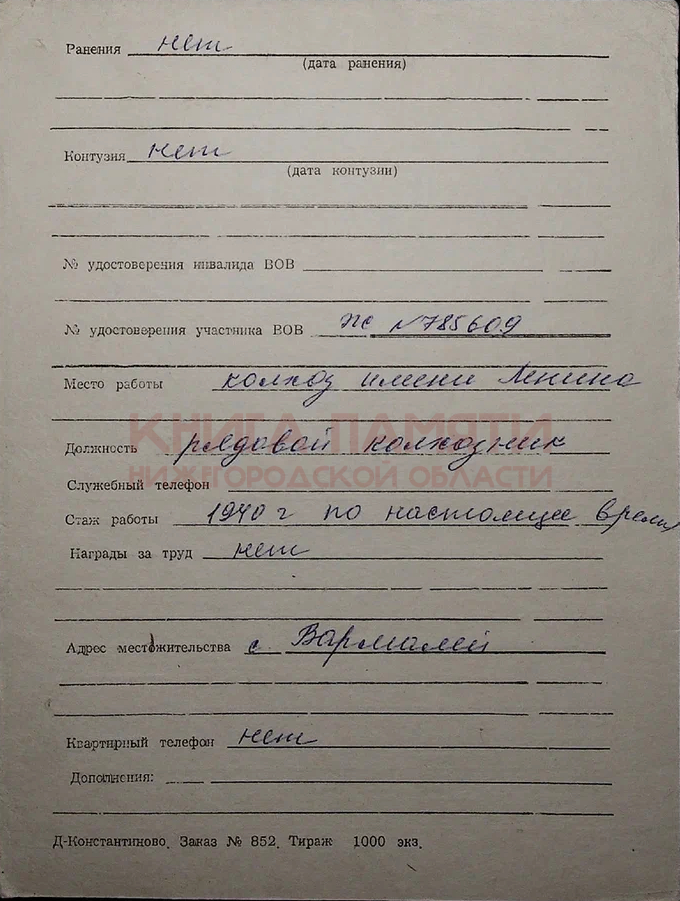 Ранения нет
(дата ранения)
Контузия нет
(дата контузии)
№ удостоверения инвалида ВОВ
№ удостоверения участника ВОВ ЖС №785609
Место работы колхоз имени Ленина
КНИГА ПАМЯТИ
Должность рядовой колхозник
НИЖЕГОРОДСКОЙ ОБЛАСТИ
Служебный телефон
Стаж работы 1940 г по настоящее время
Награды за труд нет
Адрес местожительства с. Вармалей
Квартирный телефон нет
Дополнения:
Д-Константиново. Заказ № 852. Тираж 1000 экз.